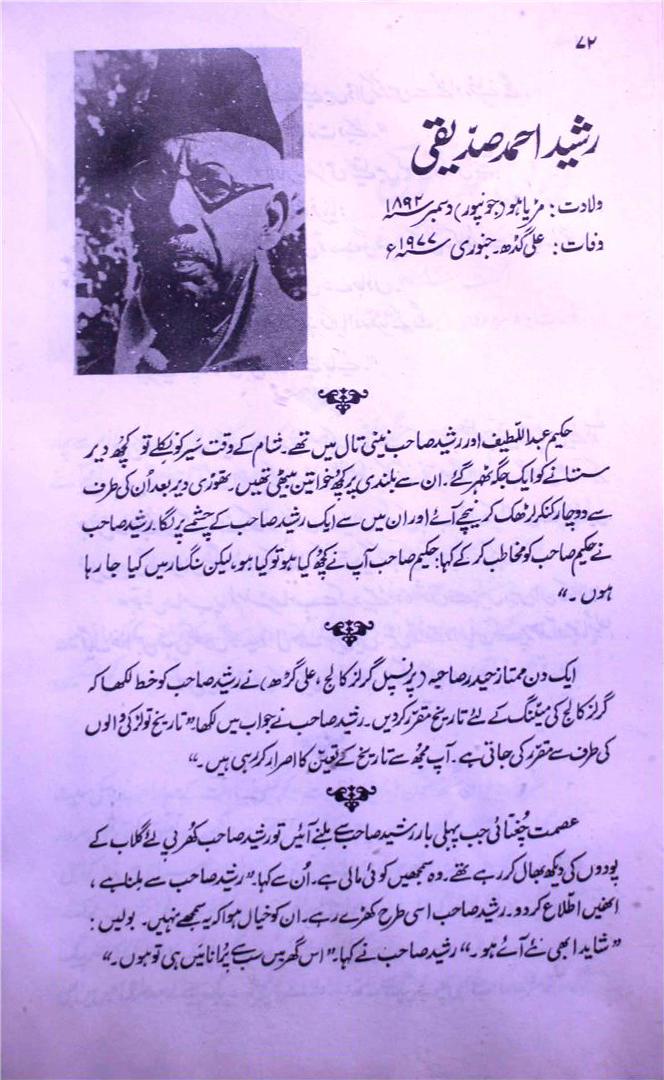 ۷۲
رشید احمد صدیقی
ولادت: مڑیاہو (جونپور) دسمبر ۱۸۹۲ء
وفات: علی گڈھ۔ جنوری ۱۹۷۷ء
حکیم عبداللطیف اور رشید صاحب نینی تال میں تھے۔ شام کے وقت سیر کو نکلے تو کچھ دیر
سستانے کو ایک جگہ ٹھہر گئے۔ ان سے بلندی پر کچھ خواتین بیٹھی تھیں۔ تھوڑی دیر بعد اُن کی طرف
سے دو چار کنکر لڑھک کر نیچے آئے اور ان میں سے ایک رشید صاحب کے چشمے پر لگا۔ رشید صاحب
نے حکیم صاحب کو مخاطب کر کے کہا: حکیم صاحب آپ نے کچھ کیا ہو تو کیا ہو، لیکن سنگسار میں کیا جا رہا
ہوں۔“
ایک دن ممتاز حیدر صاحبہ (پرنسپل گرلز کالج، علی گڑھ) نے رشید صاحب کو خط لکھا کہ
گرلز کالج کی میٹنگ کے لئے تاریخ مقرر کردیں۔ رشید صاحب نے جواب میں لکھا ”تاریخ تو لڑکی والوں
کی طرف سے مقرر کی جاتی ہے۔ آپ مجھ سے تاریخ کے تعین کا اصرار کر رہی ہیں۔“
عصمت چغتائی جب پہلی بار رشید صاحب سے ملنے آئیں تو رشید صاحب کھرپی لئے گلاب کے
پودوں کی دیکھ بھال کر رہے تھے۔ وہ سمجھیں کوئی مالی ہے۔ اُن سے کہا۔ ”رشید صاحب سے ملنا ہے،
انھیں اطلاع کردو۔ رشید صاحب اسی طرح کھڑے رہے۔ ان کو خیال ہوا کہ یہ سمجھے نہیں۔ بولیں:
”شاید ابھی نئے آئے ہو۔“ رشید صاحب نے کہا۔ ”اس گھر میں سب سے پرانا میں ہی تو ہوں۔“